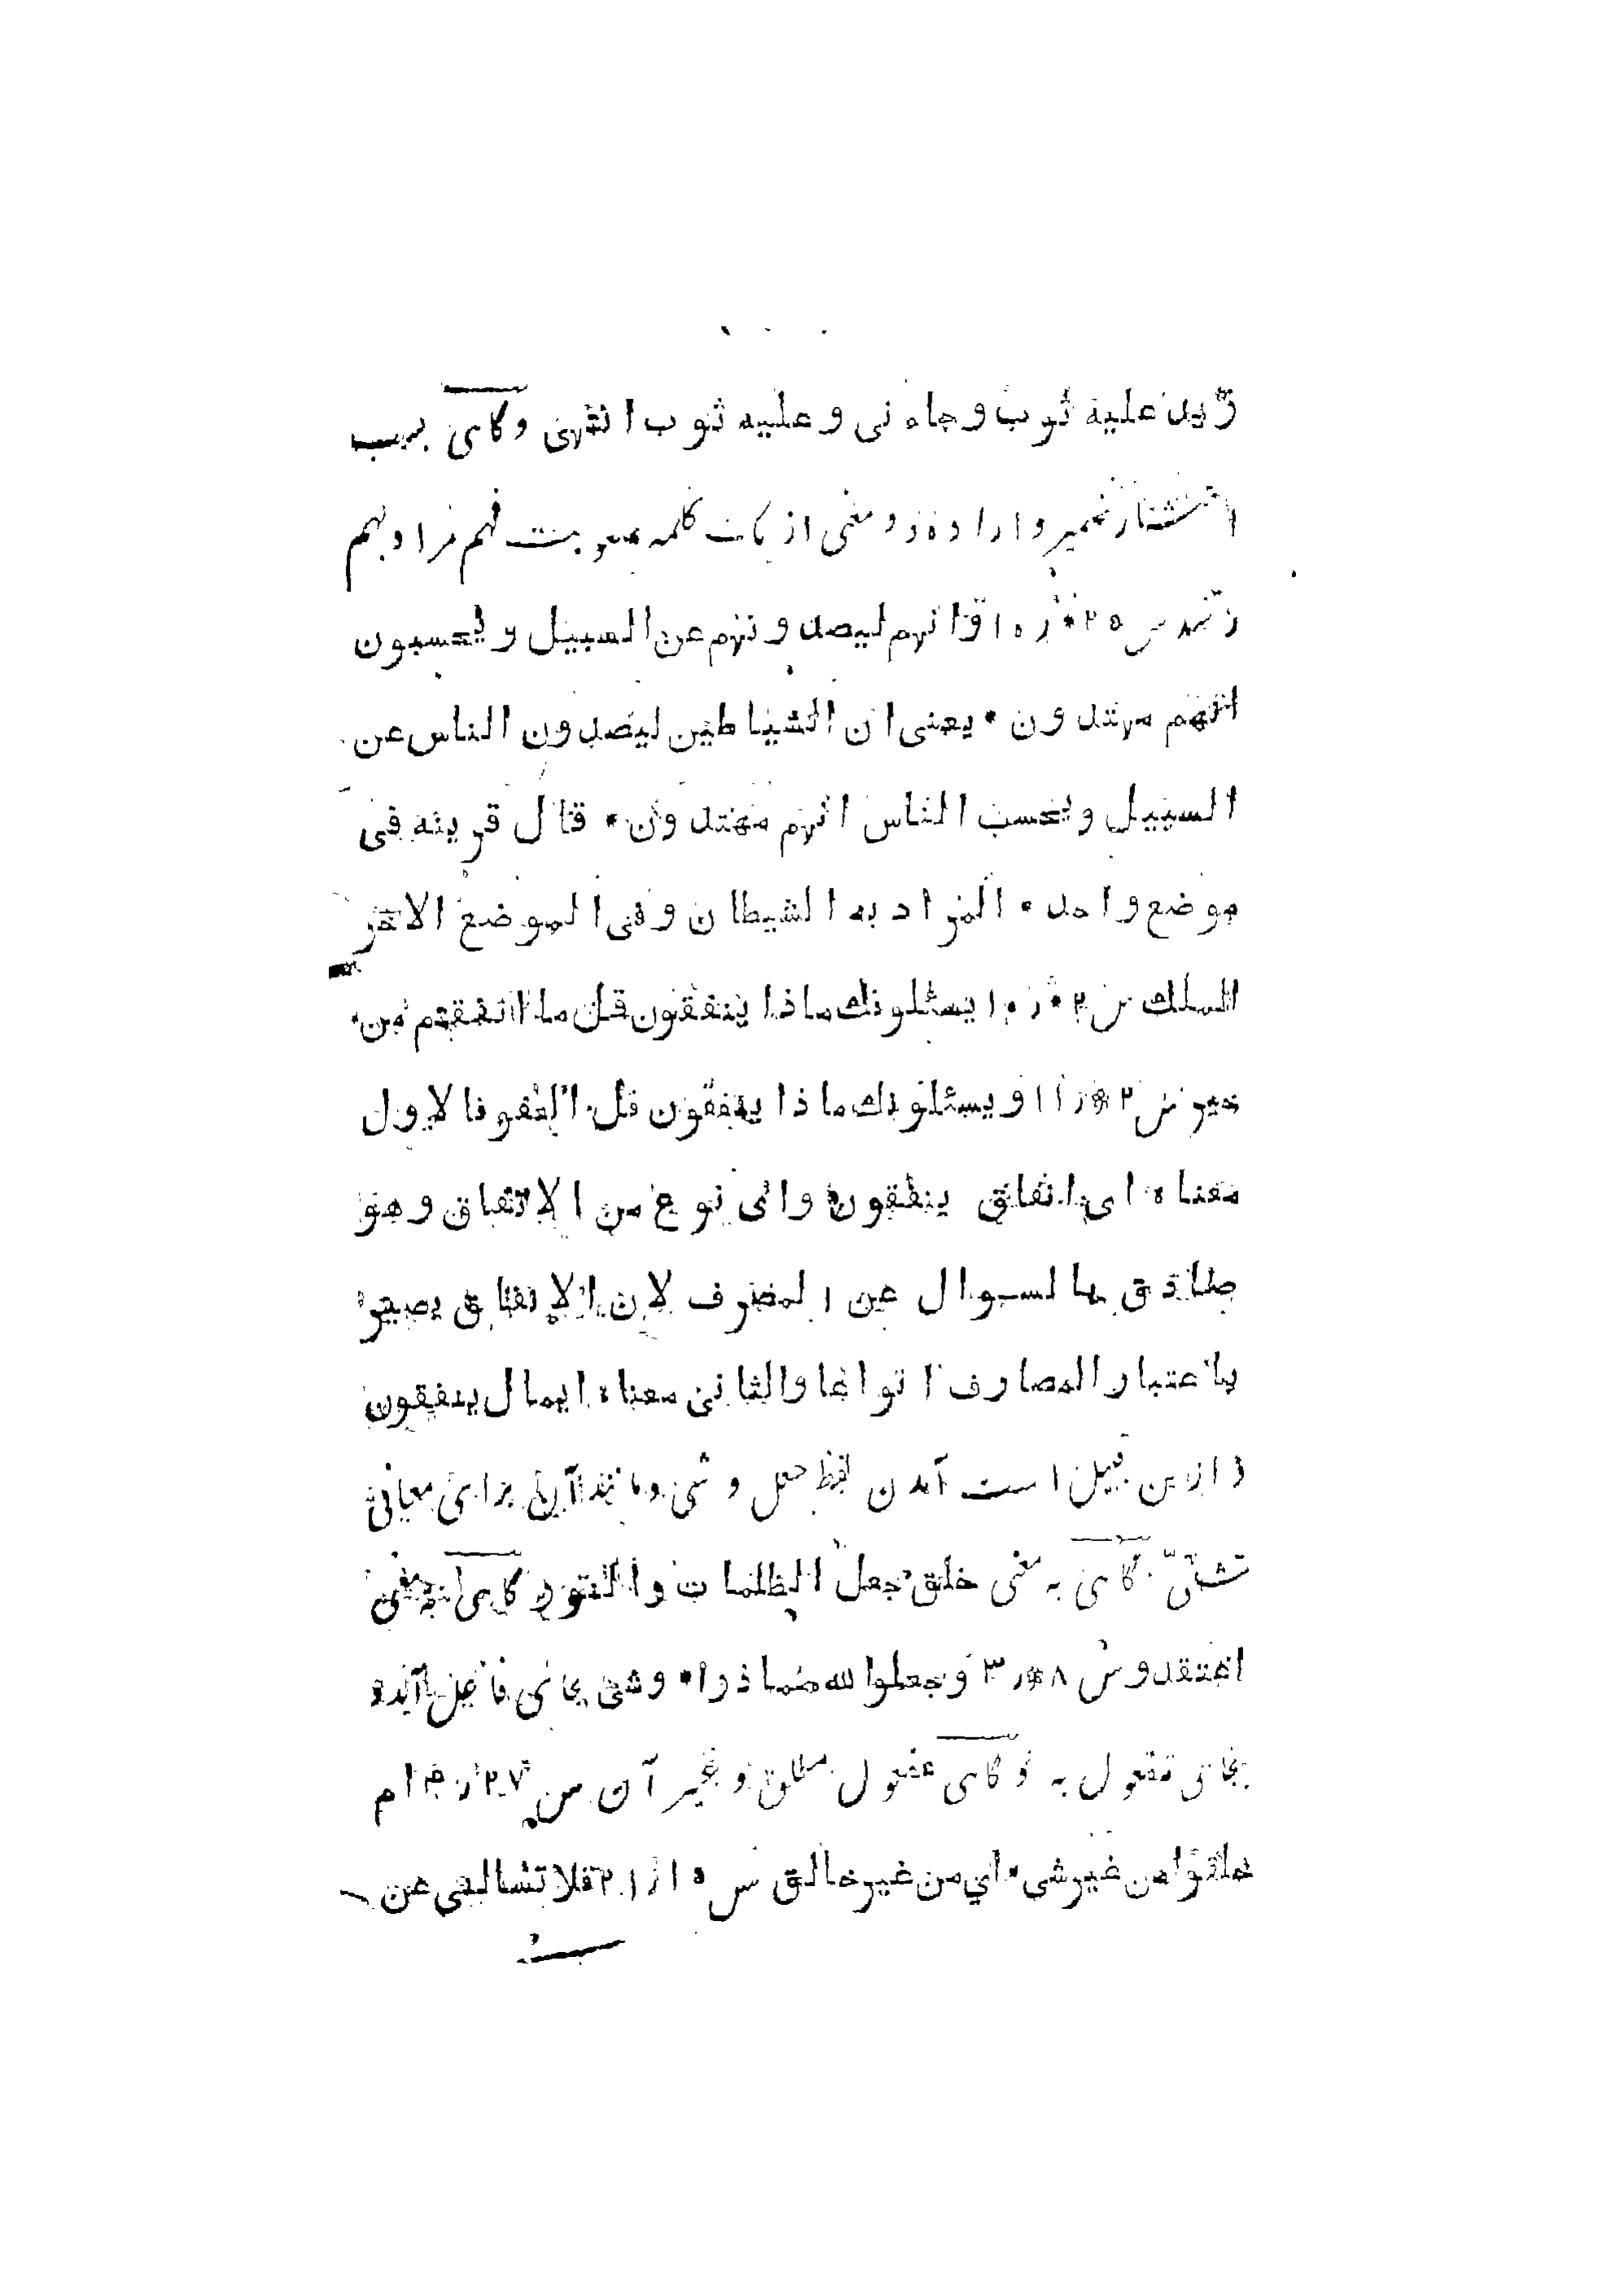 زيد عليه ثوب وجاءنى وعليه ثوب انتهى وگاهی بسبب
انتشار ضمير و اراده دو معنی از يک کلمه صعوبت فهم مراد بهم
رسد س ٢٥ * ر ١٥ و انهم ليصدونهم عن السبيل و يحسبون
انهم مهتدون * يعنى ان الشياطين ليصدون الناس عن
السبيل ويحسب الناس انهم مهتدون * قال قرينه فى
موضع واحد * المراد به الشيطان وفى الموضع الاخر
الملك س ٢ * ر ١٥ يسئلونك ماذا ينفقون قل ما انفقتم من
خير س ٢ * ر ١١ ويسئلونك ماذا ينفقون قل العفو فالاول
معناه اى انفاق ينفقون واى نوع من الانفاق وهو
صادق بالسوال عن المصرف لان الانفاق يصير
باعتبار المصارف انواعا والثانى معناه ايمال ينفقون
و ازين قبيل است آمدن لفظ جعل و شی و مانند آن برای معانی
شتی گاهی به معنی خلق جعل الظلمات والنور گاهی به معنی
اعتقد و س ٨ * ر ٣ وجعلوا لله مما ذرا * و شی بجای فاعل آيد و
بجای مفعول به و گاهی مفعول مطلق و غير آن س ٢٧ ر ٤ ام
خلقوا من غير شى * اي من غير خالق س ١٥ ر ٢١ فلا تسالنى عن